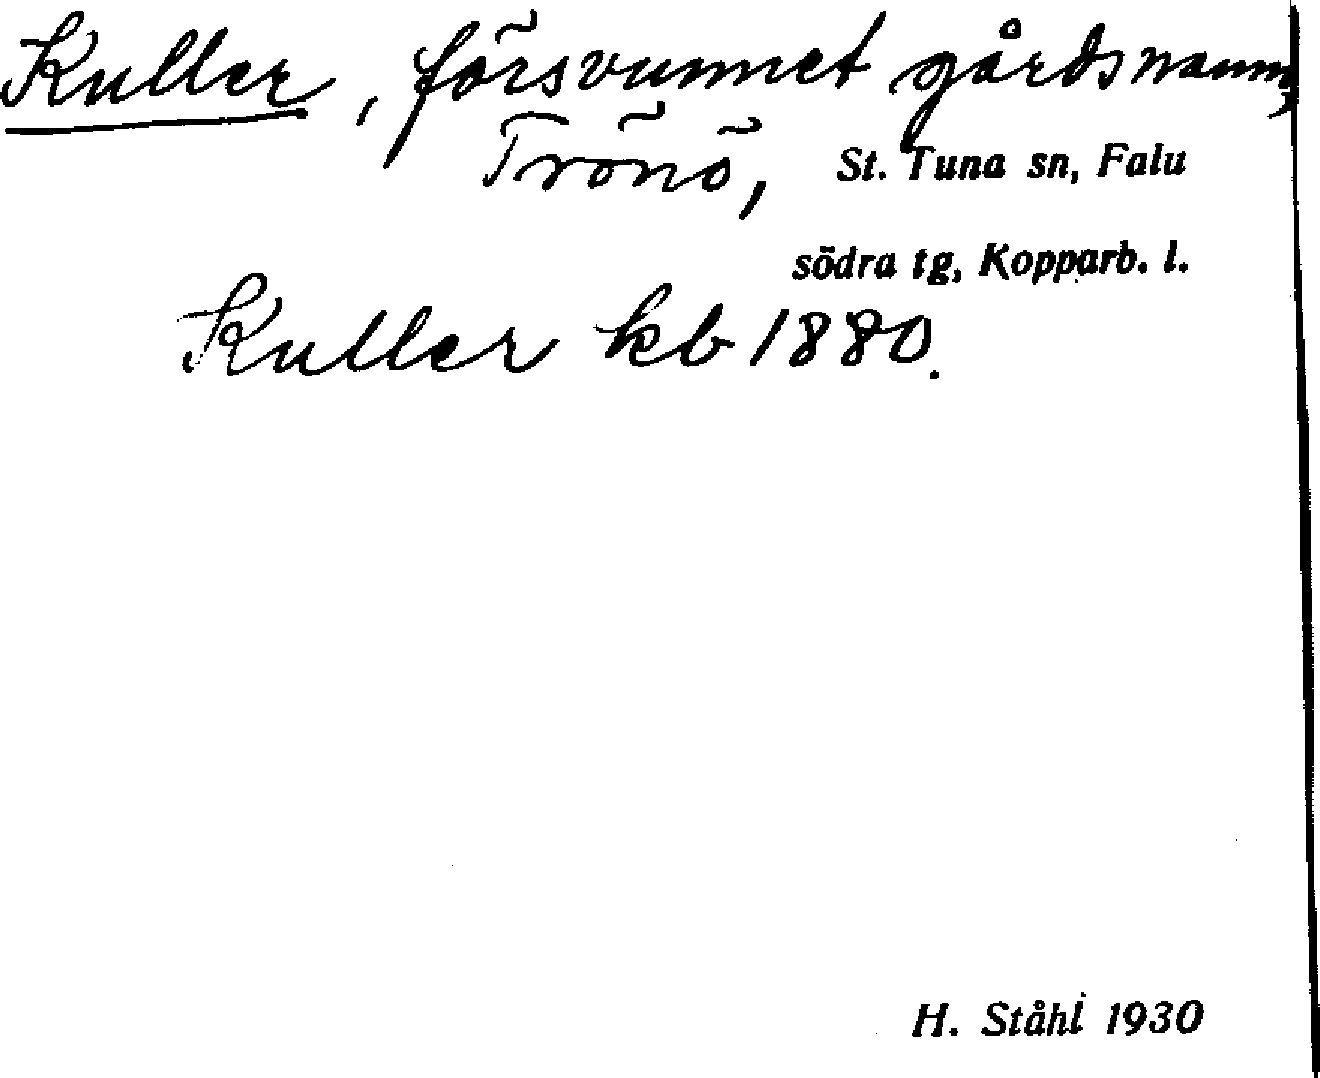 Kuller, försvunnet gårdsnamn,
Trönö, St. Tuna sn, Falu
södra tg, Kopparb. l.
Kuller kb 1880.
H. Ståhl 1930